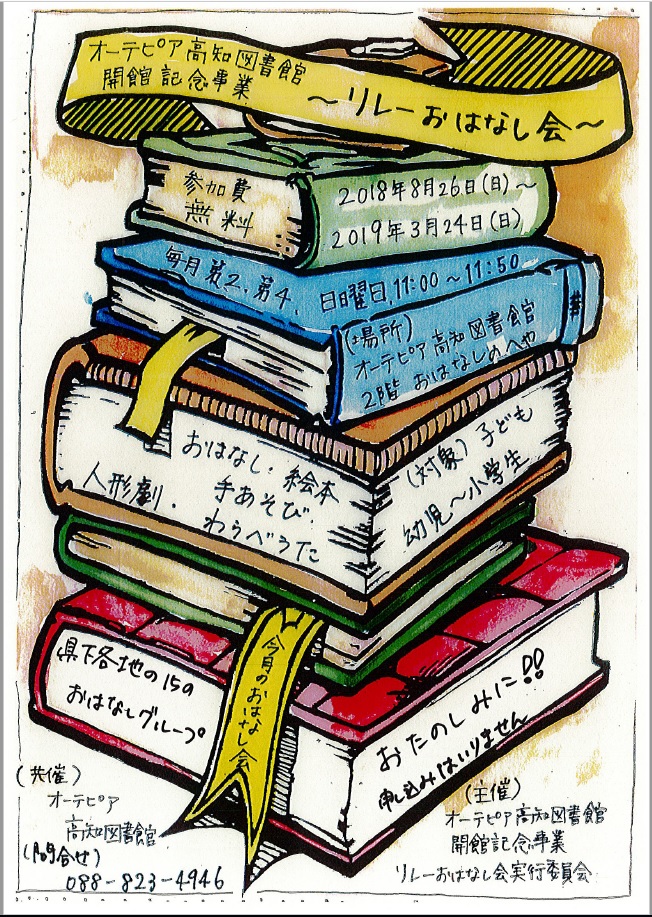 オーテピア高知図書館
開館記念事業
～リレーおはなし会～
参加費
無料
2018年8月26日(日)～
2019年3月24日(日)
毎月第2、第4、日曜日、11:00～11:50
(場所)
オーテピア高知図書館
2階 おはなしのへや
おはなし・絵本
人形劇・手あそび・
わらべうた
(対象)子ども
幼児～小学生
県下各地の15の
おはなしグループ
今月のおはなし会
おたのしみに!!
申し込みはいりません
(共催)
オーテピア
高知図書館
(問合せ)
088-823-4946
(主催)
オーテピア高知図書館
開館記念事業
リレーおはなし会実行委員会